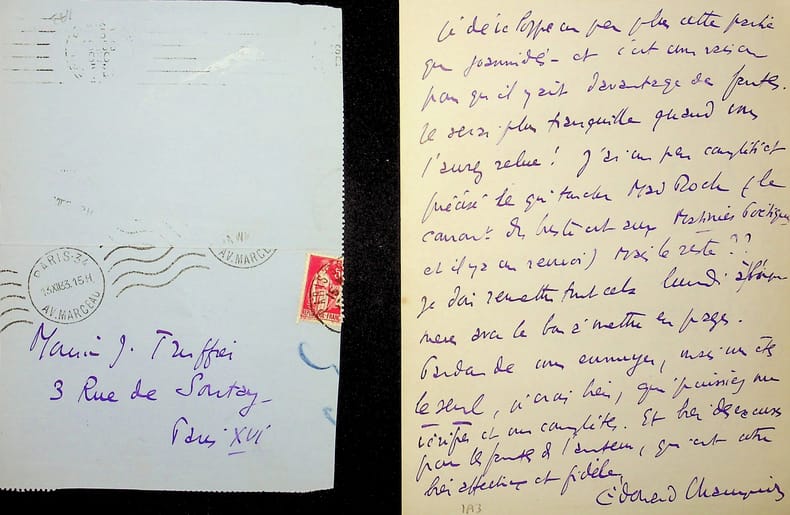 PARIS-34
AV. MARCEAU
AV. MARCEAU
J. Truffier
3 Rue de Sontay
Paris XVI
un peu plus cette partie
que Joannidès - et c'est une raison
pour qu'il y ait davantage de fautes.
Je serai plus tranquille quand vous
l'aurez relue ! J'ai un peu complété et
précisé ce qui touche Mad Roch (le
est aux Matinées Poétiques
et il y a un renvoi) Mais le reste ??
Je dois remettre tout cela lundi
avec le bon à mettre en pages.
Pardon de vous ennuyer, mais vous êtes
le seul, je crois bien, qui puissiez me
vérifier et me compléter. Et bien des excuses
pour les fautes de l'auteur, qui est votre
bien affectionné et fidèle,
Edouard Champion
1A3